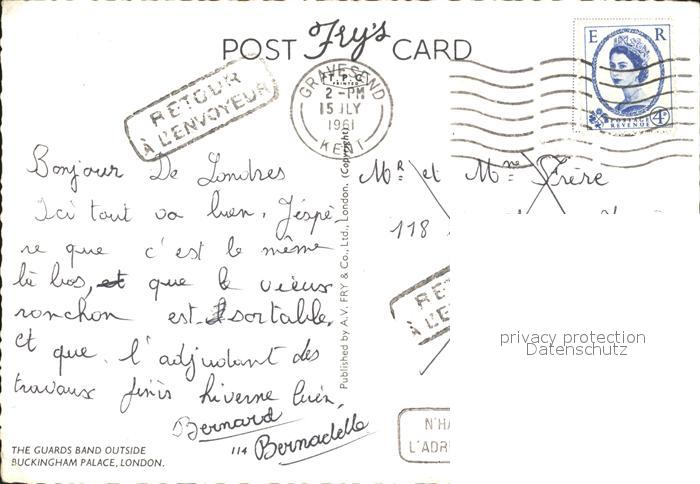 POST Fry's CARD
E R
POSTAGE
REVENUE
4D
GRAVESEND
T.P.C.
PRINTED
2-PM
15 JLY
1961
KENT
RETOUR
À L'ENVOYEUR
Bonjour De Londres
Ici tout va bien. J'éspé-
re que c'est le même
là bas, et que le vieux
ronchon est sortable.
et que l'adjudant des
travaux finis hiverne bien.
Bernard
Bernadelle
Mr et Mme Frère
118
RE
À L'E
N'HA
L'ADR
privacy protection
Datenschutz
Published by A.V. FRY & Co., Ltd., London. (Copyright)
THE GUARDS BAND OUTSIDE
BUCKINGHAM PALACE, LONDON.
114